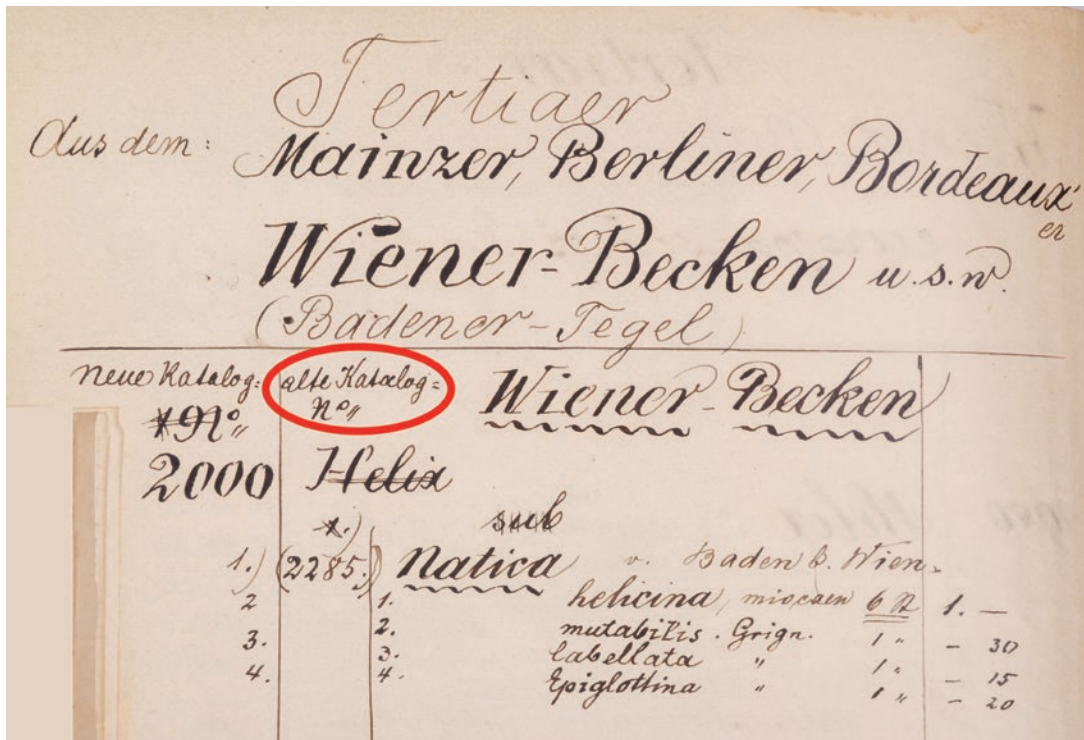 Tertiaer
Aus dem:
Mainzer, Berliner, Bordeaux'
er
Wiener-Becken u.s.w.
(Badener-Tegel)
neue Katalog: alte Katalog= Wiener-Becken
N° „ N° „
2000 Helix
1.) (2285.) Natica v. Baden b. Wien.
2 1. helicina, miocaen 6 St 1. —
3. 2. mutabilis. Grign. 1 " — 30
3. labellata " 1 " — 15
4. 4. Epiglottina " 1 " — 20